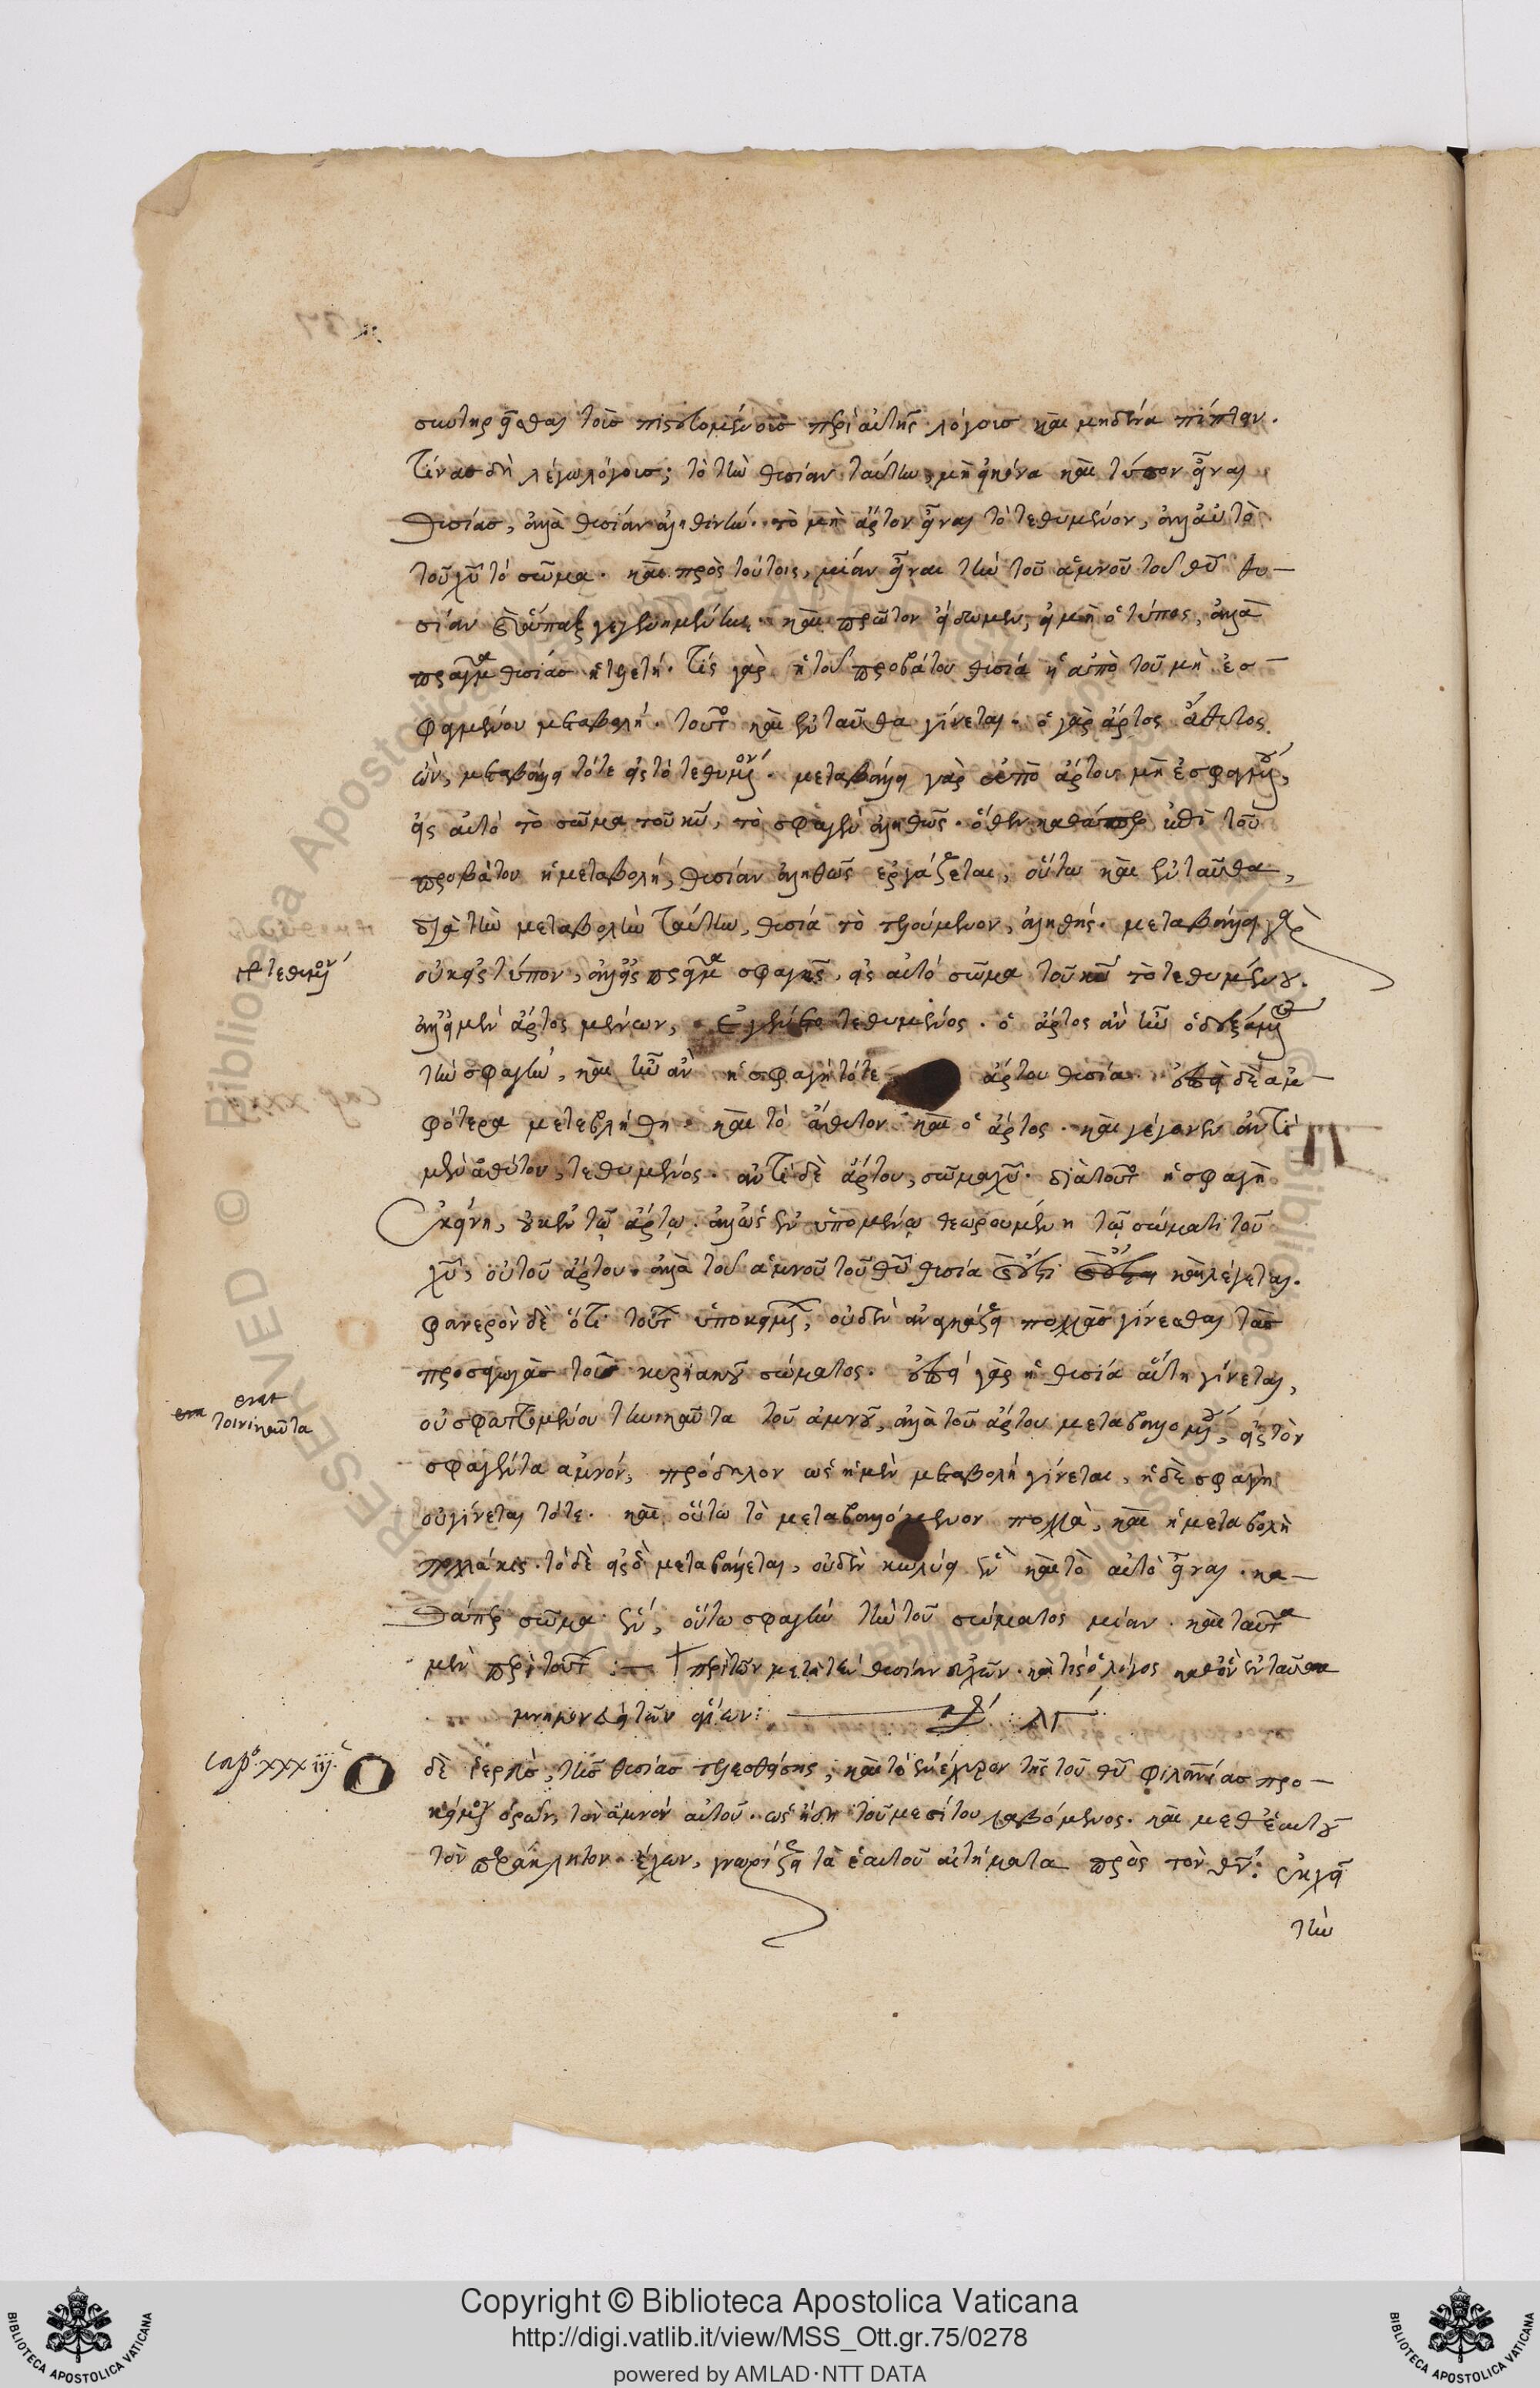 σωτηρεῖσθαι τοῖς πιστευομένοις περὶ αὐτῆς λόγοις καὶ μηδένα πίπτειν.
τίνας δὴ λέγω λόγους; τὸ τὴν θυσίαν ταύτην, μὴ εἰκόνα καὶ τύπον εἶναι
θυσίας, ἀλλὰ θυσίαν ἀληθινήν. τὸ μὴ ἄρτον εἶναι τὸ τεθυμένον, ἀλλ' αὐτὸ
τοῦ χυ τὸ σῶμα. καὶ πρὸς τούτοις, μίαν εἶναι τὴν τοῦ ἀμνοῦ τοῦ θυ θυ-
σίαν καὶ ἅπαξ γεγενημένην. καὶ πρῶτον ἴδωμεν, εἰ μὴ ὁ τύπος, ἀλλὰ
πρᾶγμα θυσίας ἡ τελετή. τίς γὰρ ἡ τοῦ προβάτου θυσία ἡ ἀπὸ τοῦ μὴ ἐσ-
φαγμένου μεταβολή. τοῦτο καὶ ἐνταῦθα γίνεται. ὁ γὰρ ἄρτος ἄθυτος
ὢν, μεταβάλλει τότε εἰς τὸ τεθυμένον. μεταβάλλει γὰρ ἀπὸ ἄρτου μὴ ἐσφαγμένου,
εἰς αὐτὸ τὸ σῶμα τοῦ κυ, τὸ σφαγὲν ἀληθῶς. ὅθεν καθάπερ ἐπὶ τοῦ
προβάτου ἡ μεταβολή, θυσίαν ἀληθῶς ἐργάζεται, οὕτω καὶ ἐνταῦθα,
διὰ τὴν μεταβολὴν ταύτην, θυσία τὸ τελούμενον, ἀληθής. μεταβάλλει γὰρ
οὐκ εἰς τύπον, ἀλλ' εἰς πρᾶγμα σφαγῆς, εἰς αὐτὸ σῶμα τοῦ κυ τὸ τεθυμένον.
τεθυμένον
ἀλλ' εἰ μὲν ἄρτος μένων, ἐγένετο τεθυμένος. ὁ ἄρτος ἂν ἦν ὁ δεξάμενος
τὴν σφαγὴν, καὶ ἦν ἂν ἡ σφαγὴ τότε ἄρτου θυσία. ἐπεὶ δὲ ἀμ-
φότερα μετεβλήθη. καὶ τὸ ἄθυτον καὶ ὁ ἄρτος. καὶ γέγονεν ἀντὶ
μὲν ἀθύτου, τεθυμένος. ἀντὶ δὲ ἄρτου, σῶμα χυ. διὰ τοῦτο ἡ σφαγὴ
ἐκείνη, οὐκ ἐν τῷ ἄρτῳ. ἀλλ' ὡς ἐν ὑποκειμένῳ θεωρουμένη τῷ σώματι τοῦ
χυ, οὐ τοῦ ἄρτου. ἀλλὰ τοῦ ἀμνοῦ τοῦ θυ θυσία καὶ ἔστι καὶ λέγεται.
φανερὸν δὲ ὅτι τούτων ὑποκειμένων, οὐδὲν ἀναγκάζει πολλὰς γίνεσθαι τὰς
προσαγωγὰς τοῦ κυριακοῦ σώματος. ἐπεὶ γὰρ ἡ θυσία αὕτη γίνεται,
erat
τοινικαῦτα
οὐ σφαττομένου τηνικαῦτα τοῦ ἀμνοῦ, ἀλλὰ τοῦ ἄρτου μεταβαλλομένου, εἰς τὸν
σφαγέντα ἀμνόν, πρόδηλον ὡς ἡ μὲν μεταβολὴ γίνεται, ἡ δὲ σφαγὴ
οὐ γίνεται τότε. καὶ οὕτω τὸ μεταβαλλόμενον πολλὰ, καὶ ἡ μεταβολὴ
πολλάκις. τὸ δὲ εἰς ὃ μεταβάλλεται, οὐδὲν κωλύει ἓν καὶ τὸ αὐτὸ εἶναι. κα-
θάπερ σῶμα ἕν, οὕτω σφαγὴν τὴν τοῦ σώματος μίαν. καὶ ταῦτα
μὲν περὶ τούτων :- † περὶ τῶν μετὰ τὴν θυσίαν εὐχῶν. καὶ τίς ὁ λόγος καθ' ὃν ἐνταῦθα
μνημονεύει τῶν ἁγίων: λγ
Cap. xxxiij.
Ο δὲ ἱερεὺς, τῆς θυσίας τελεσθείσης, καὶ τὸ ἐνέχυρον τῆς τοῦ θυ φιλανίας προ-
κείμενον ὁρῶν, τὸν ἀμνὸν αὐτοῦ. ὡς ἤδη τοῦ μεσίτου λαβόμενος. καὶ μεθ' ἑαυτοῦ
τὸν παράκλητον ἔχων, γνωρίζει τὰ ἑαυτοῦ αἰτήματα πρὸς τὸν θν. ἐκχεῖ
τὴν
Copyright © Biblioteca Apostolica Vaticana
http://digi.vatlib.it/view/MSS_Ott.gr.75/0278
powered by AMLAD·NTT DATA